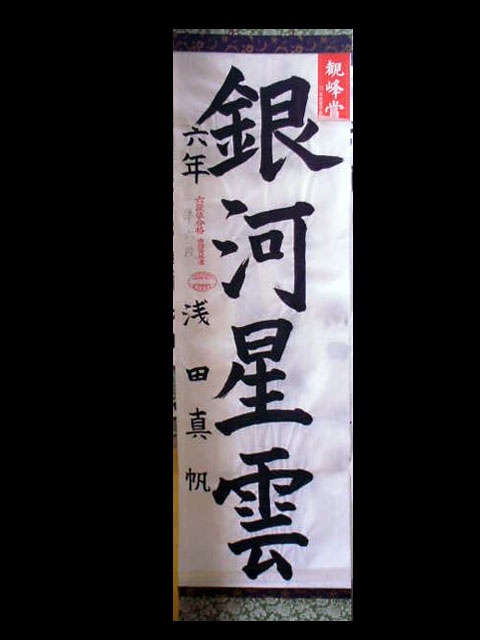 観峰賞
銀河星雲
六年
準六段
浅田真帆